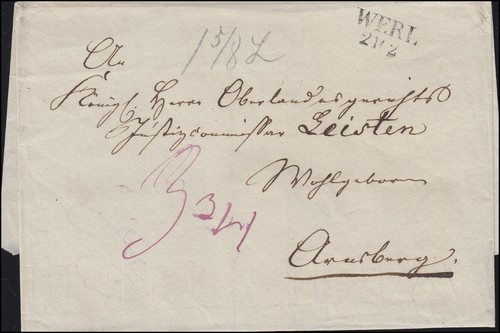 WERL
21/2
1 5/8 L
An
Königl. Herrn Oberlandesgerichts
Justizcommissar Leisten
Wohlgeborn
3 3/4
Arnsberg.